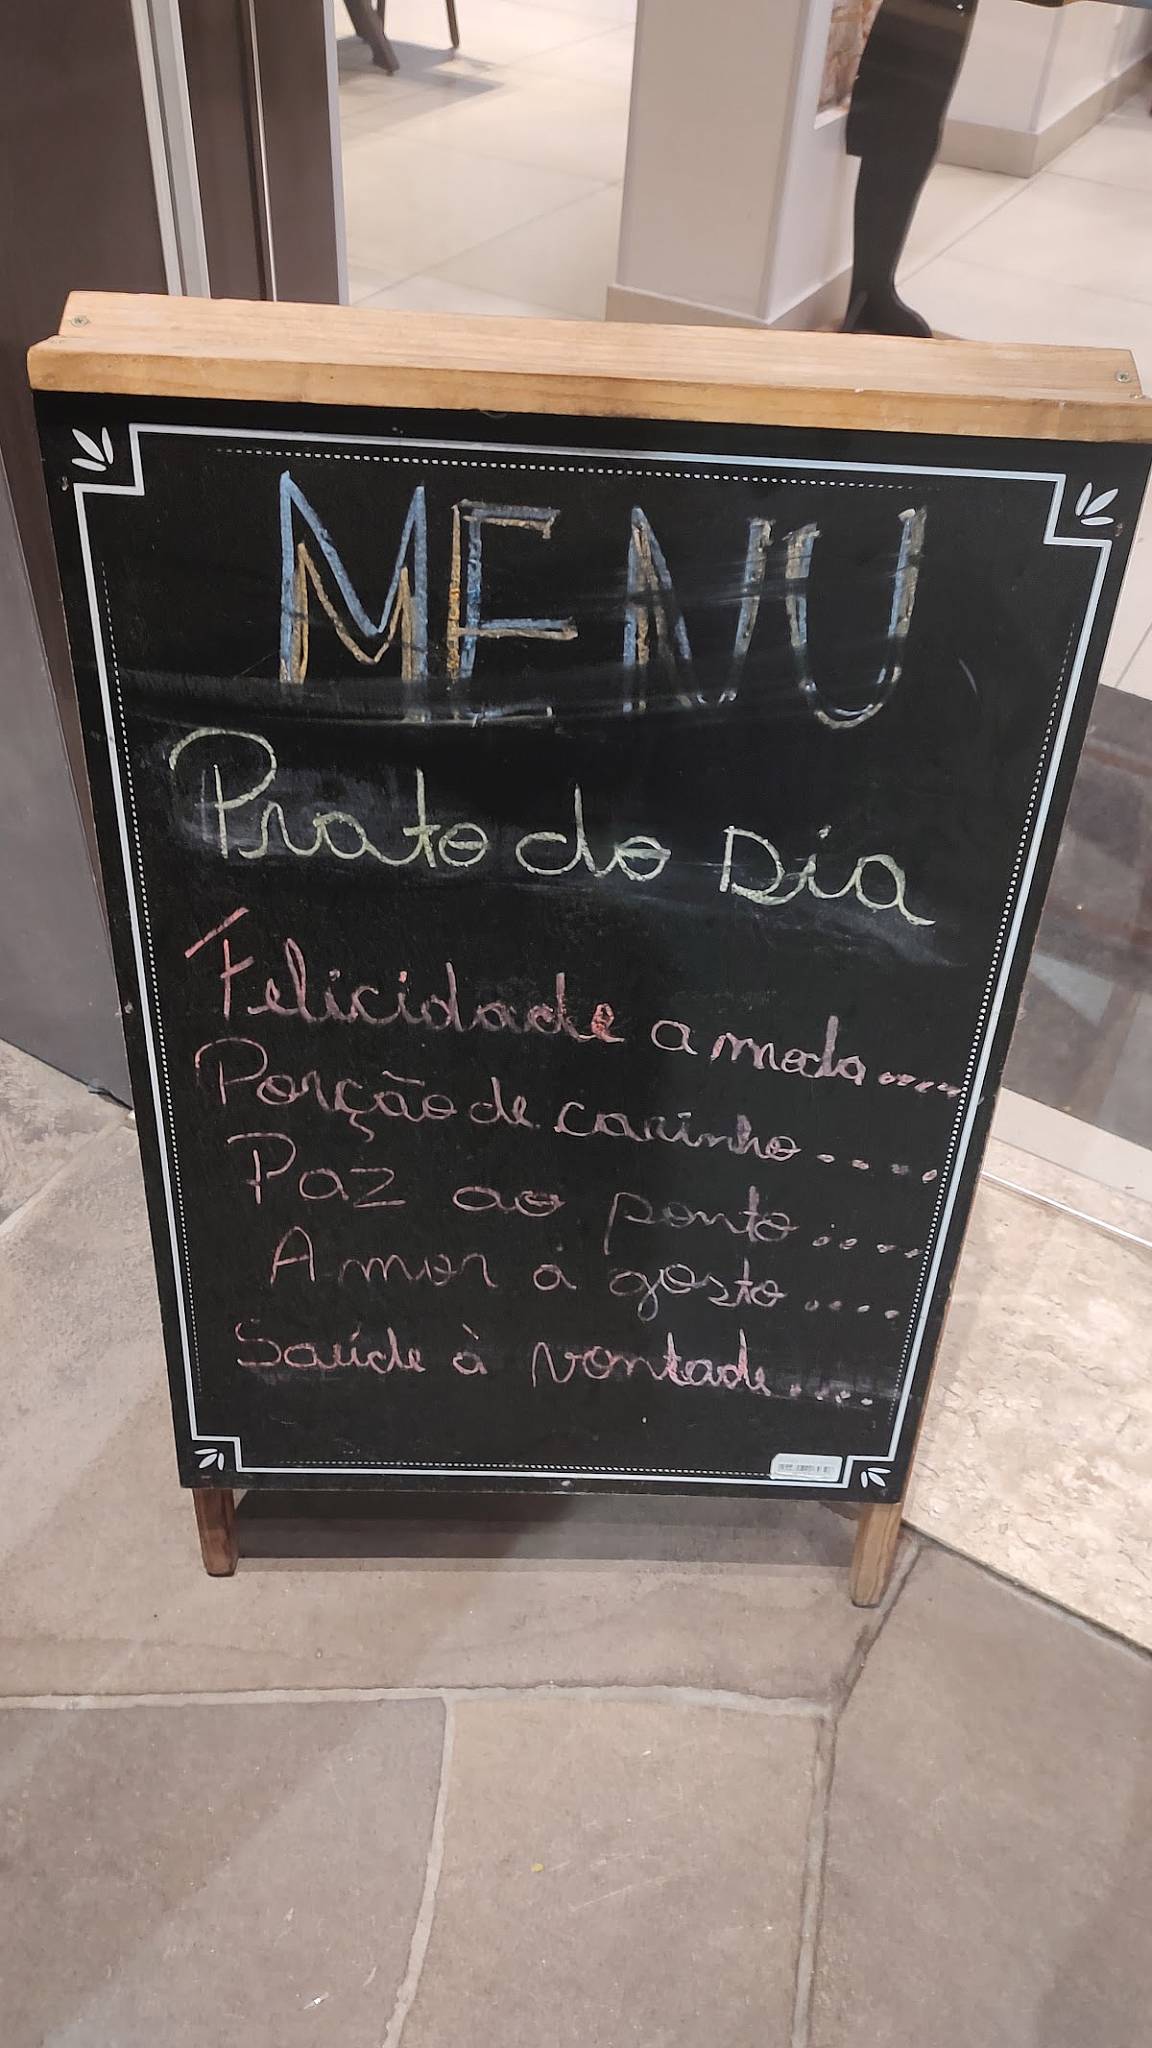 MENU
Prato do Dia
Felicidade a moda.....
Porção de carinho.....
Paz ao ponto.....
Amor à gosto.....
Saúde à vontade.....